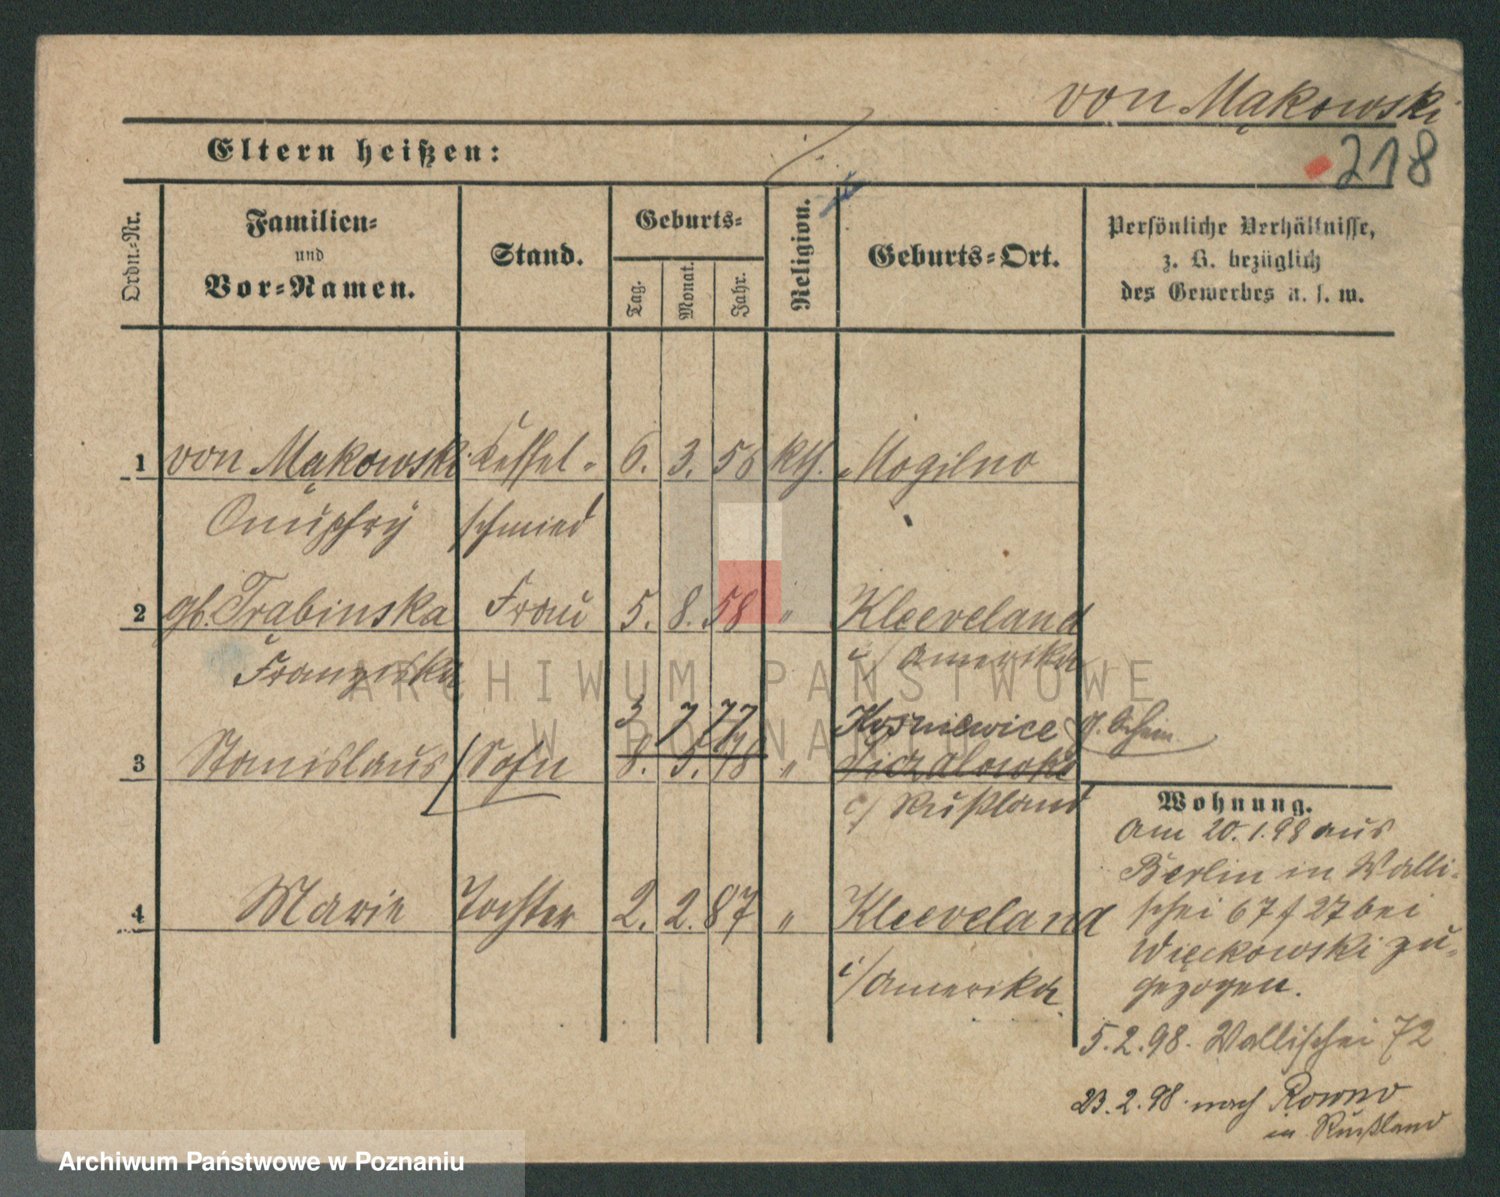 von Mąkowski
218
Eltern heißen:
Ordn.-Nr.
Familien-
und
Vor-Namen.
Stand.
Geburts-
Tag.
Monat.
Jahr.
Religion.
Geburts-Ort.
Persönliche Verhältnisse,
z. B. bezüglich
des Gewerbes u. s. w.
1 von Mąkowski Kessel- 6. 3. 56 kth. Mogilno
Onuphry schmied
2 gb. Trabinska Frau 5. 8. 58 " Kleeveland
Franziska i/ Amerika
3 7 77 Kosniewice g. Schein
3 Stanislaus Sohn 8. 5. 78 "
c/ Rußland
4 Marie Tochter 2. 2. 87 " Kleeveland
i/ Amerika
Wohnung.
Am 20.1.98 aus
Berlin in Walli-
schei 67 f 27 bei
Więckowski zu-
gezogen.
5.2.98. Wallischei 72
23.2.98. nach Rowno
in Rußland
ARCHIWUM PAŃSTWOWE
W POZNANIU
Archiwum Państwowe w Poznaniu